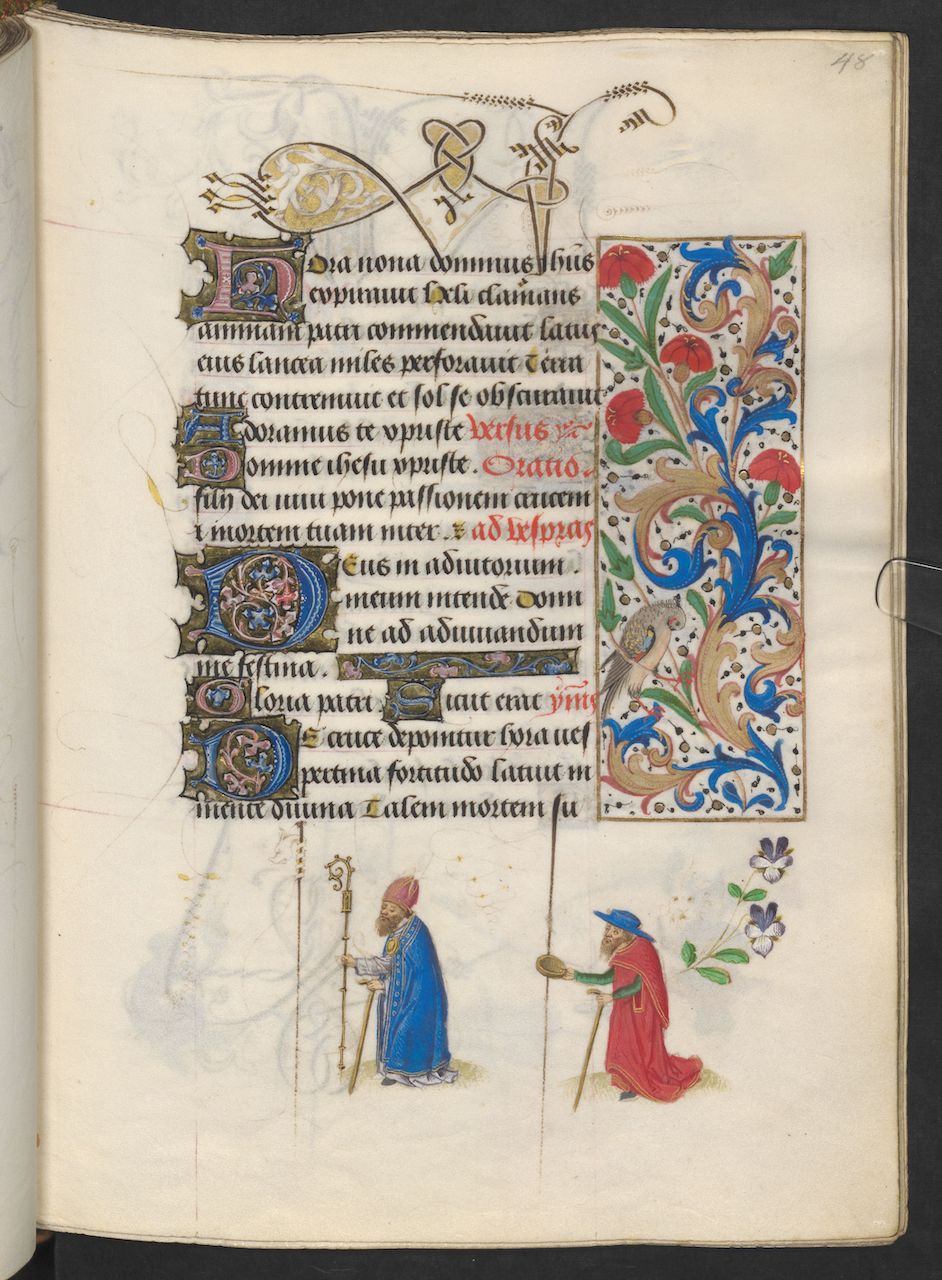 48
Hora nona dominus ihūs
expirauit hely clamans
animam patri commendauit latus
eius lancea miles perforauit Terra
tunc contremuit et sol se obscurauit
Adoramus te xpriste versus
Domine ihesu xpriste. Oratio.
filij dei uiui pone passionem crucem
et mortem tuam inter. ad vespras
Deus in adiutorium.
meum intende domi
ne ad adiuuandum
me festina.
Gloria patri Sicut erat ymns
De cruce deponitur hora ues
pertina fortitudo latuit in
mente diuina Talem mortem su